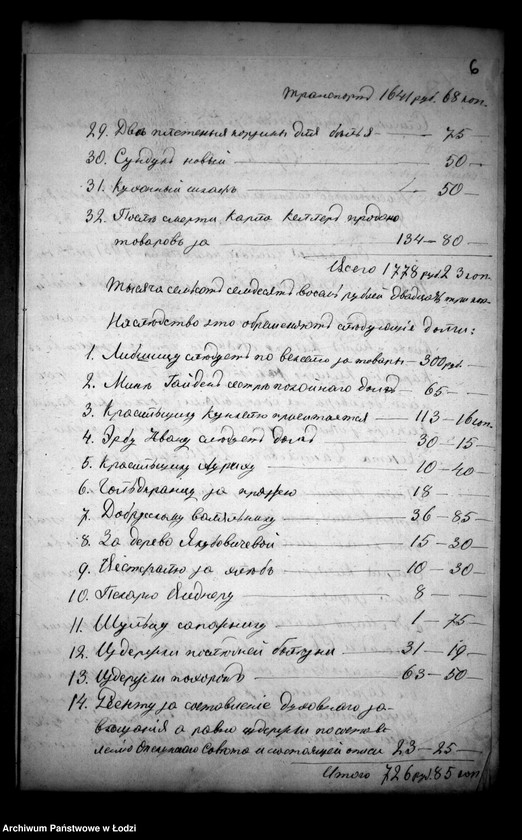 6
Транспортъ 1641 руб. 68 коп.
29. Два плетеныя корзины для бѣлья — 75 —
30. Сундукъ новый — 50 —
31. Кухонный шкафъ — 50 —
32. Послѣ смерти Карла Келлеръ продано
товаровъ за — 134 — 80 —
Всего 1778 руб 23 коп.
Тысяча семьсотъ семдесятъ восемь рублей двадцать три коп.
Наслѣдство это обременяютъ слѣдующія долги:
1. слѣдуетъ по векселю за товары — 300 руб.
2. сестрѣ покойнаго долгъ 65 —
3. Красильщику причитается — 113 — 16 коп.
4. Ивану слѣдуетъ долгъ 30 — 15 —
5. Красильщику — 10 — 40
6. за пряжу 18 —
7. Добрускому — 36 — 85 —
8. За дерево Якубовичевой — 15 — 30 —
9. за хлѣбъ — 10 — 30 —
10. Пекарю — 8 —
11. Шульцу сапожнику — 1 — 75 —
12. Издержки послѣдней болѣзни — 31 — 19 —
13. Издержки похоронъ — 63 — 50 —
14. за составленіе духовнаго за-
вѣщанія а равно издержки по состав-
ленію Опекунскаго Совѣта и настоящей описи 23 — 25 —
Итого 726 руб. 85 коп
Archiwum Państwowe w Łodzi